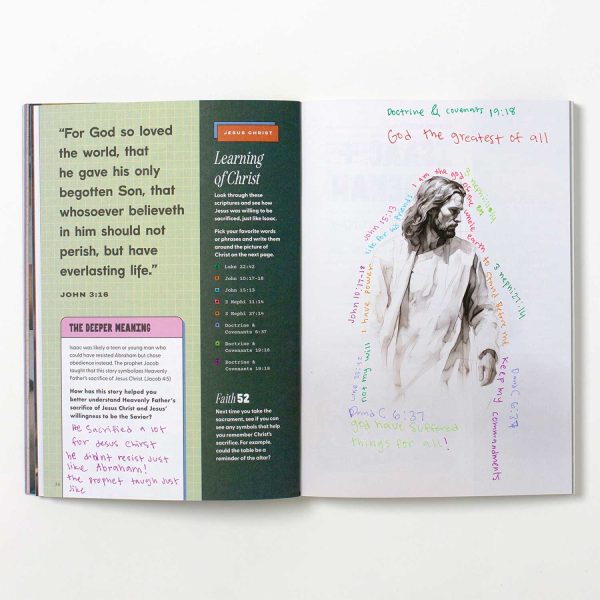 “For God so loved
the world, that
he gave his only
begotten Son, that
whosoever believeth
in him should not
perish, but have
everlasting life.”
JOHN 3:16
THE DEEPER MEANING
Isaac was likely a teen or young man who
could have resisted Abraham but chose
obedience instead. The prophet Jacob
taught that this story symbolizes Heavenly
Father’s sacrifice of Jesus Christ. (Jacob 4:5)
How has this story helped you
better understand Heavenly Father’s
sacrifice of Jesus Christ and Jesus’
willingness to be the Savior?
He Sacrificed a lot
for Jesus Christ
he didnt resist just
like Abraham!
the Prophet taugh just
like
JESUS CHRIST
Learning
of Christ
Look through these
scriptures and see how
Jesus was willing to be
sacrificed, just like Isaac.
Pick your favorite words
or phrases and write them
around the picture of
Christ on the next page.
Luke 22:42
John 10:17–18
John 15:13
3 Nephi 11:14
3 Nephi 27:14
Doctrine &
Covenants 6:37
Doctrine &
Covenants 19:18
Doctrine &
Covenants 19:18
Faith 52
Next time you take the
sacrament, see if you can
see any symbols that help
you remember Christ’s
sacrifice. For example,
could the table be a
reminder of the alter?
Doctrine & covenants 19:18
God the greatest of all
3 nephi 11:14
I am the god of the whole earth
John 15:13
life for his friends
John 10:17-18
I have power
not my will
3 nephi 27:14
to stand before me
Keep my commandments
D and C 6:37
D and C 6:37
god have suffered
things for all!